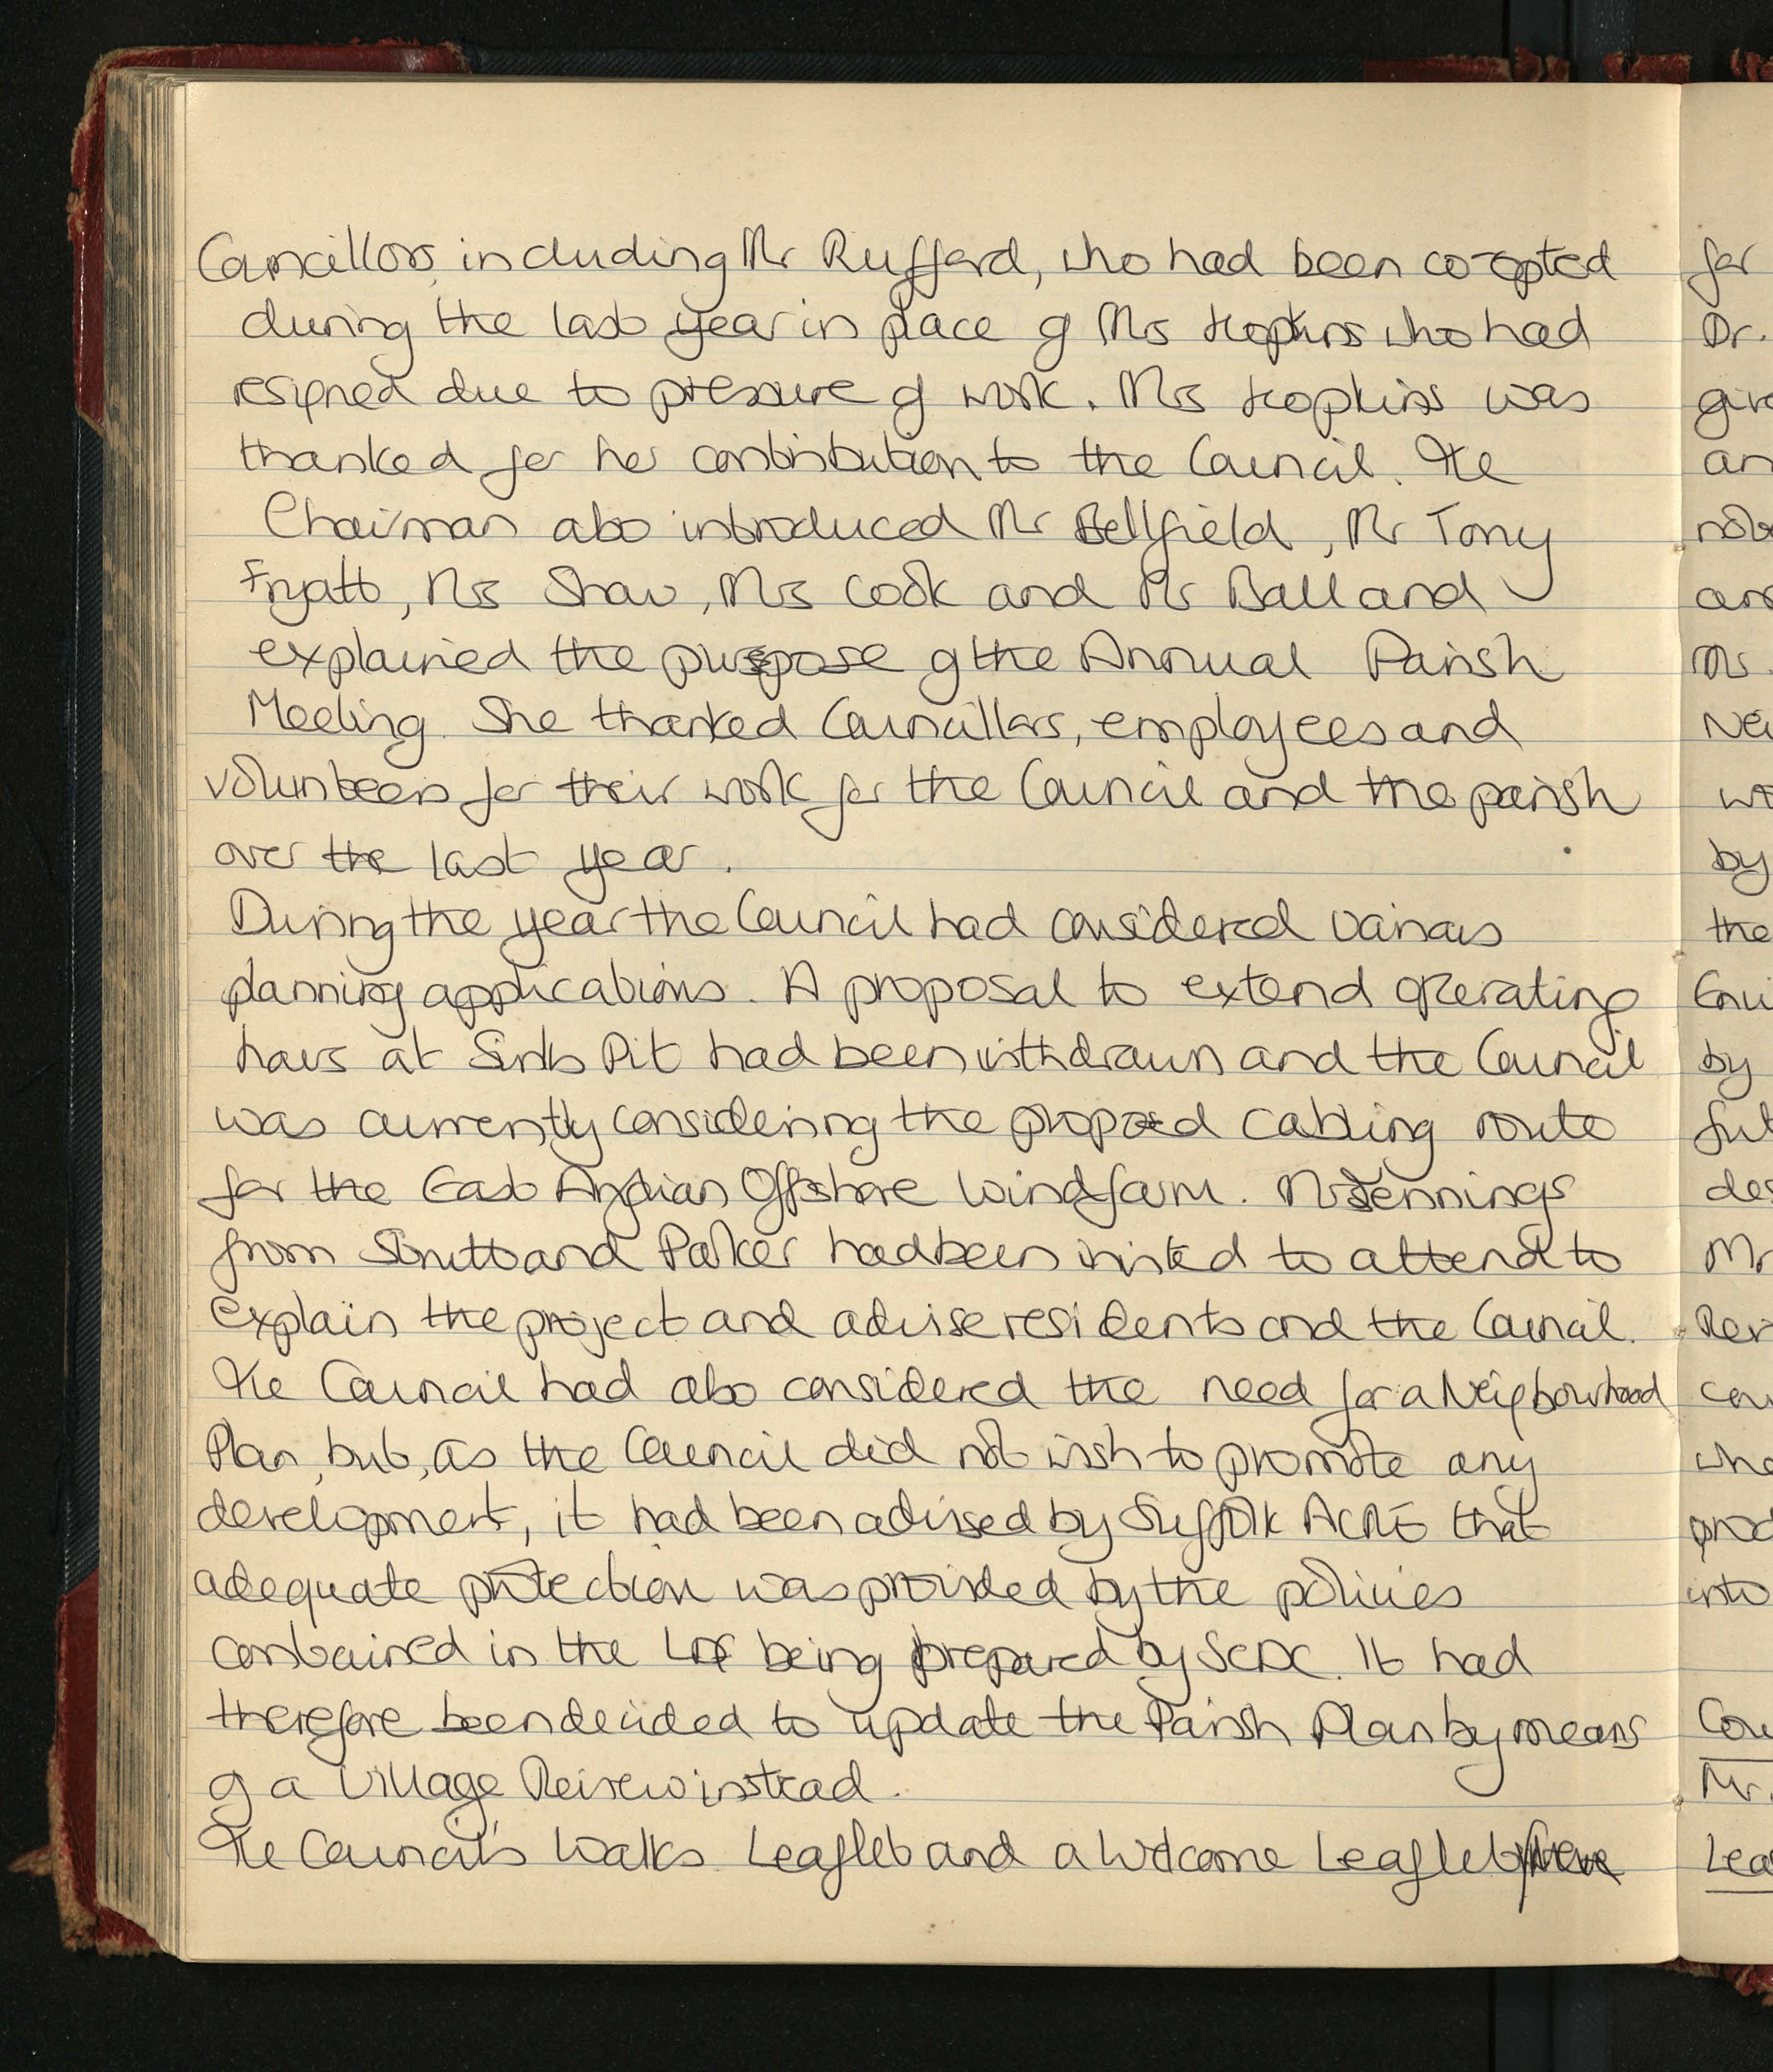 Councillors, including Mr Rufford, who had been co-opted
during the last year in place of Mrs Hopkins who had
resigned due to pressure of work. Mrs Hopkins was
thanked for her contribution to the Council. The
Chairman also introduced Mr Bellfield, Mr Tony
Fryatt, Mrs Shaw, Mrs Cook and Mr Ball and
explained the purpose of the Annual Parish
Meeting. She thanked Councillors, employees and
volunteers for their work for the Council and the parish
over the last year.
During the year the Council had considered various
planning applications. A proposal to extend operating
hours at Sinks Pit had been withdrawn and the Council
was currently considering the proposed cabling route
for the East Anglian Offshore Windfarm. Mr Jennings
from Strutt and Parker had been invited to attend to
explain the project and advise residents and the Council.
The Council had also considered the need for a Neighbourhood
Plan, but, as the Council did not wish to promote any
development, it had been advised by Suffolk ACRE that
adequate protection was provided by the policies
contained in the LDF being prepared by SCDC. It had
therefore been decided to update the Parish Plan by means
of a Village Review instead.
The Council's Walks Leaflet and a Welcome Leaflet
for
Dr.
an
Ms
by
the
by
Mr
into
Mr.